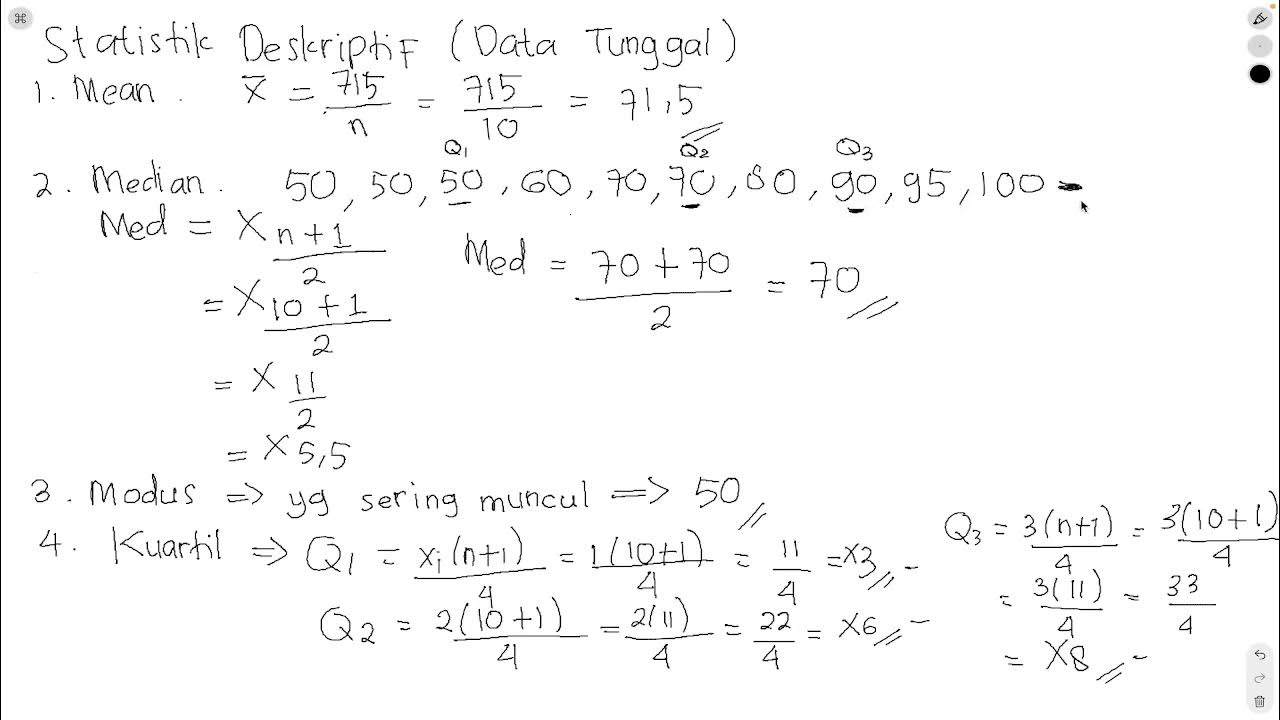 Statistik Deskriptif (Data Tunggal)
1. Mean . x̄ = 715/n = 715/10 = 71,5
Q1 Q2 Q3
2. Median. 50, 50, 50, 60, 70, 70, 80, 90, 95, 100
Med = X (n+1)/2
Med = (70+70)/2 = 70
= X (10+1)/2
= X 11/2
= X 5,5
3. Modus => yg sering muncul => 50
4. Kuartil => Q1 = xi(n+1)/4 = 1(10+1)/4 = 11/4 = X3
Q2 = 2(10+1)/4 = 2(11)/4 = 22/4 = X6
Q3 = 3(n+1)/4 = 3(10+1)/4
= 3(11)/4 = 33/4
= X8